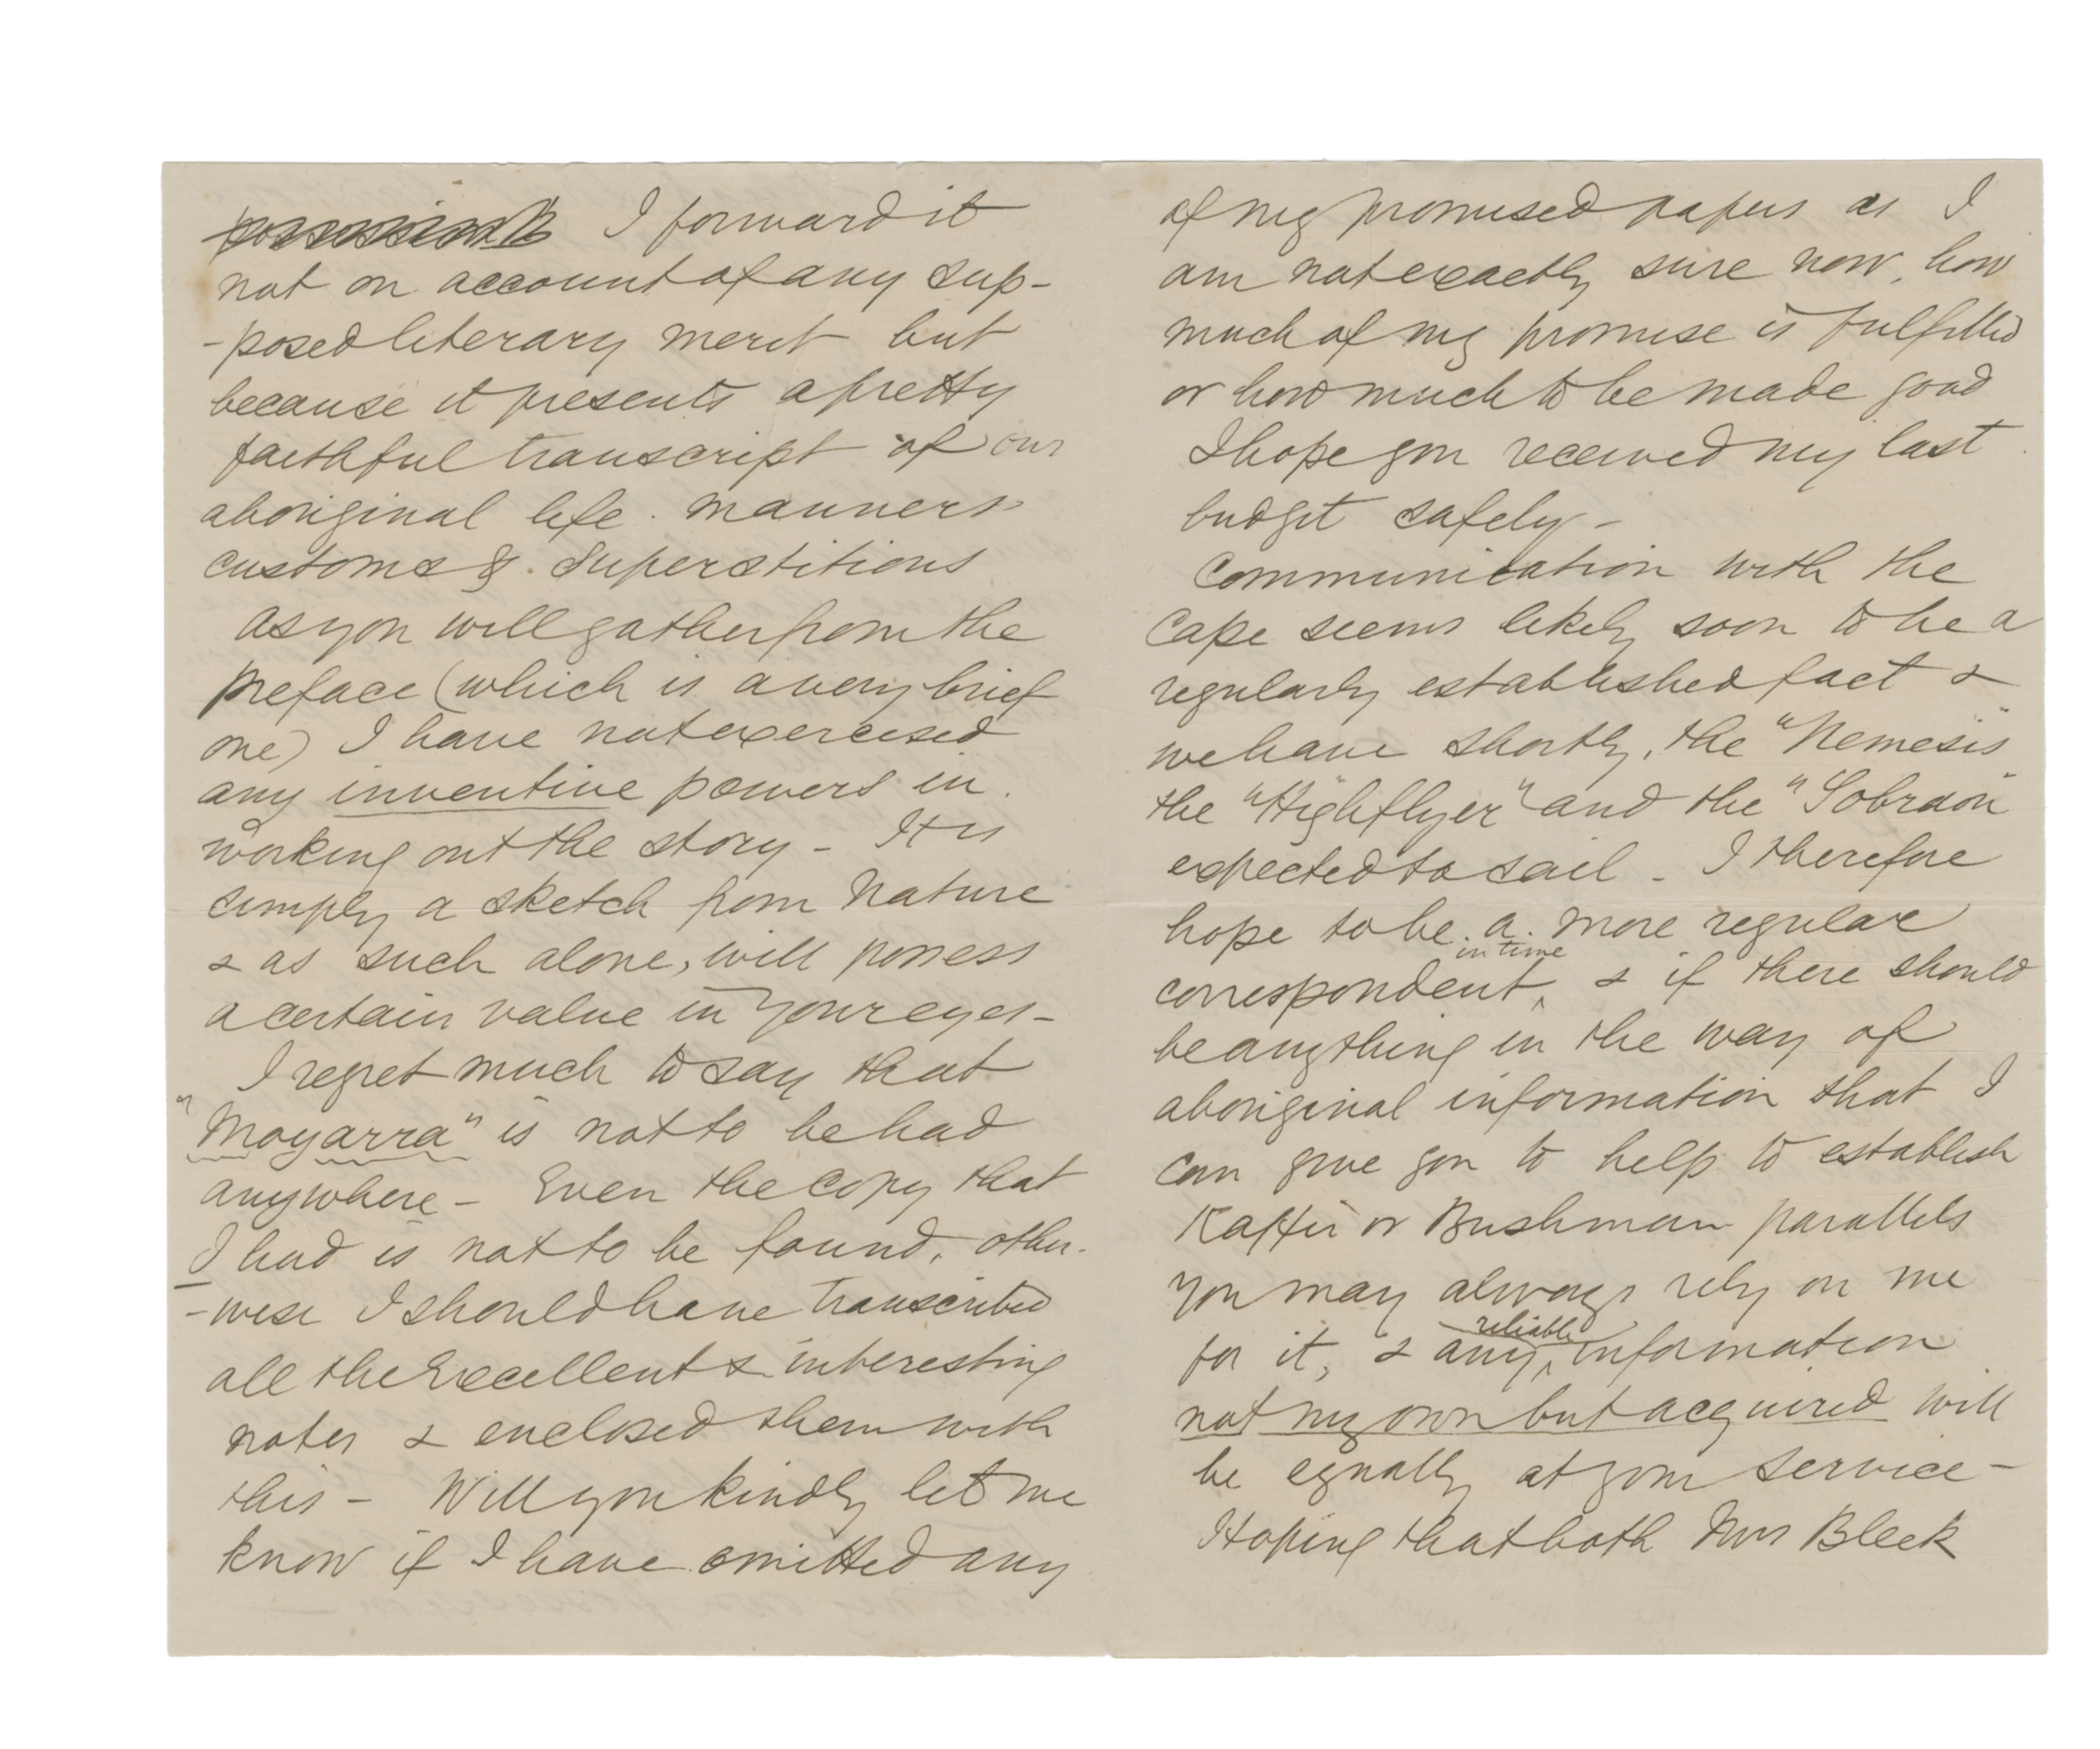 I forward it
not on account of any sup-
-posed literary merit but
because it presents a pretty
faithful transcript of our
aboriginal life. manners
customs &. superstitions
as you will gather from the
preface (which is a very brief
one) I have not exercised
any inventive powers in.
working out the story - It is
simply a sketch from Nature
& as such alone, will possess
a certain value in your eyes -
I regret much to say that
"Moyarra" is not to be had
anywhere - Even the copy that
I had is not to be found, other-
-wise I should have transcribed
all the Excellent & interesting
notes & enclosed them with
this - Will you kindly let me
know if I have omitted any
of my promised papers as I
am not exactly sure now, how
much of my promise is fulfilled
or how much to be made good
I hope you received my last
budget safely -
Communication with the
Cape seems likely soon to be a
regularly established fact &
we have shortly, the "Nemesis"
the "Highflyer" and the "Sobraon"
expected to sail - I therefore
hope to be. a. more regular
in time
correspondent, & if there should
be anything in the way of
aboriginal information that I
can give you to help to establish
Kaffir or Bushman parallels
you may always rely on me
reliable
for it, & any information
not my own but acquired will
be equally at your service -
Hoping that both Mrs Bleek